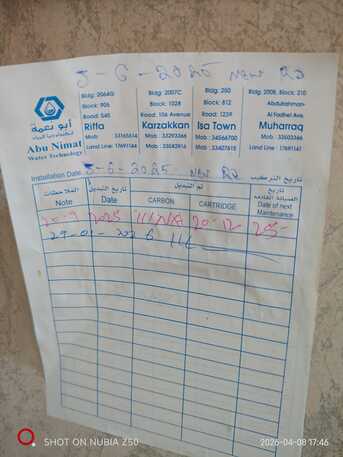 5-6-2025 New RO
أبو نعمة
لتكنولوجيا المياه
Abu Nimat
Water Technology
Bldg: 2064G
Block: 906
Road: 645
Riffa
Mob: 33165614
Land Line: 17691144
Bldg: 2007C
Block: 1028
Road: 106 Avenue
Karzakkan
Mob: 33293366
Mob: 33642916
Bldg: 250
Block: 812
Road: 1239
Isa Town
Mob: 34566700
Mob: 33407615
Bldg: 200B, Block: 210
Abdulrahman
Al Fadhel Ave.
Muharraq
Mob: 33603366
Land Line: 17691141
Installation Date: 5-6-2025 New RO تاريخ التركيب
الملاحظات تاريخ التبديل تم التبديل تاريخ الصيانة القادمة
Note Date CARBON CARTRIDGE Date of next Maintenance
2025 20-12 2025
29-01-2026
SHOT ON NUBIA Z50
2026-04-08 17:46